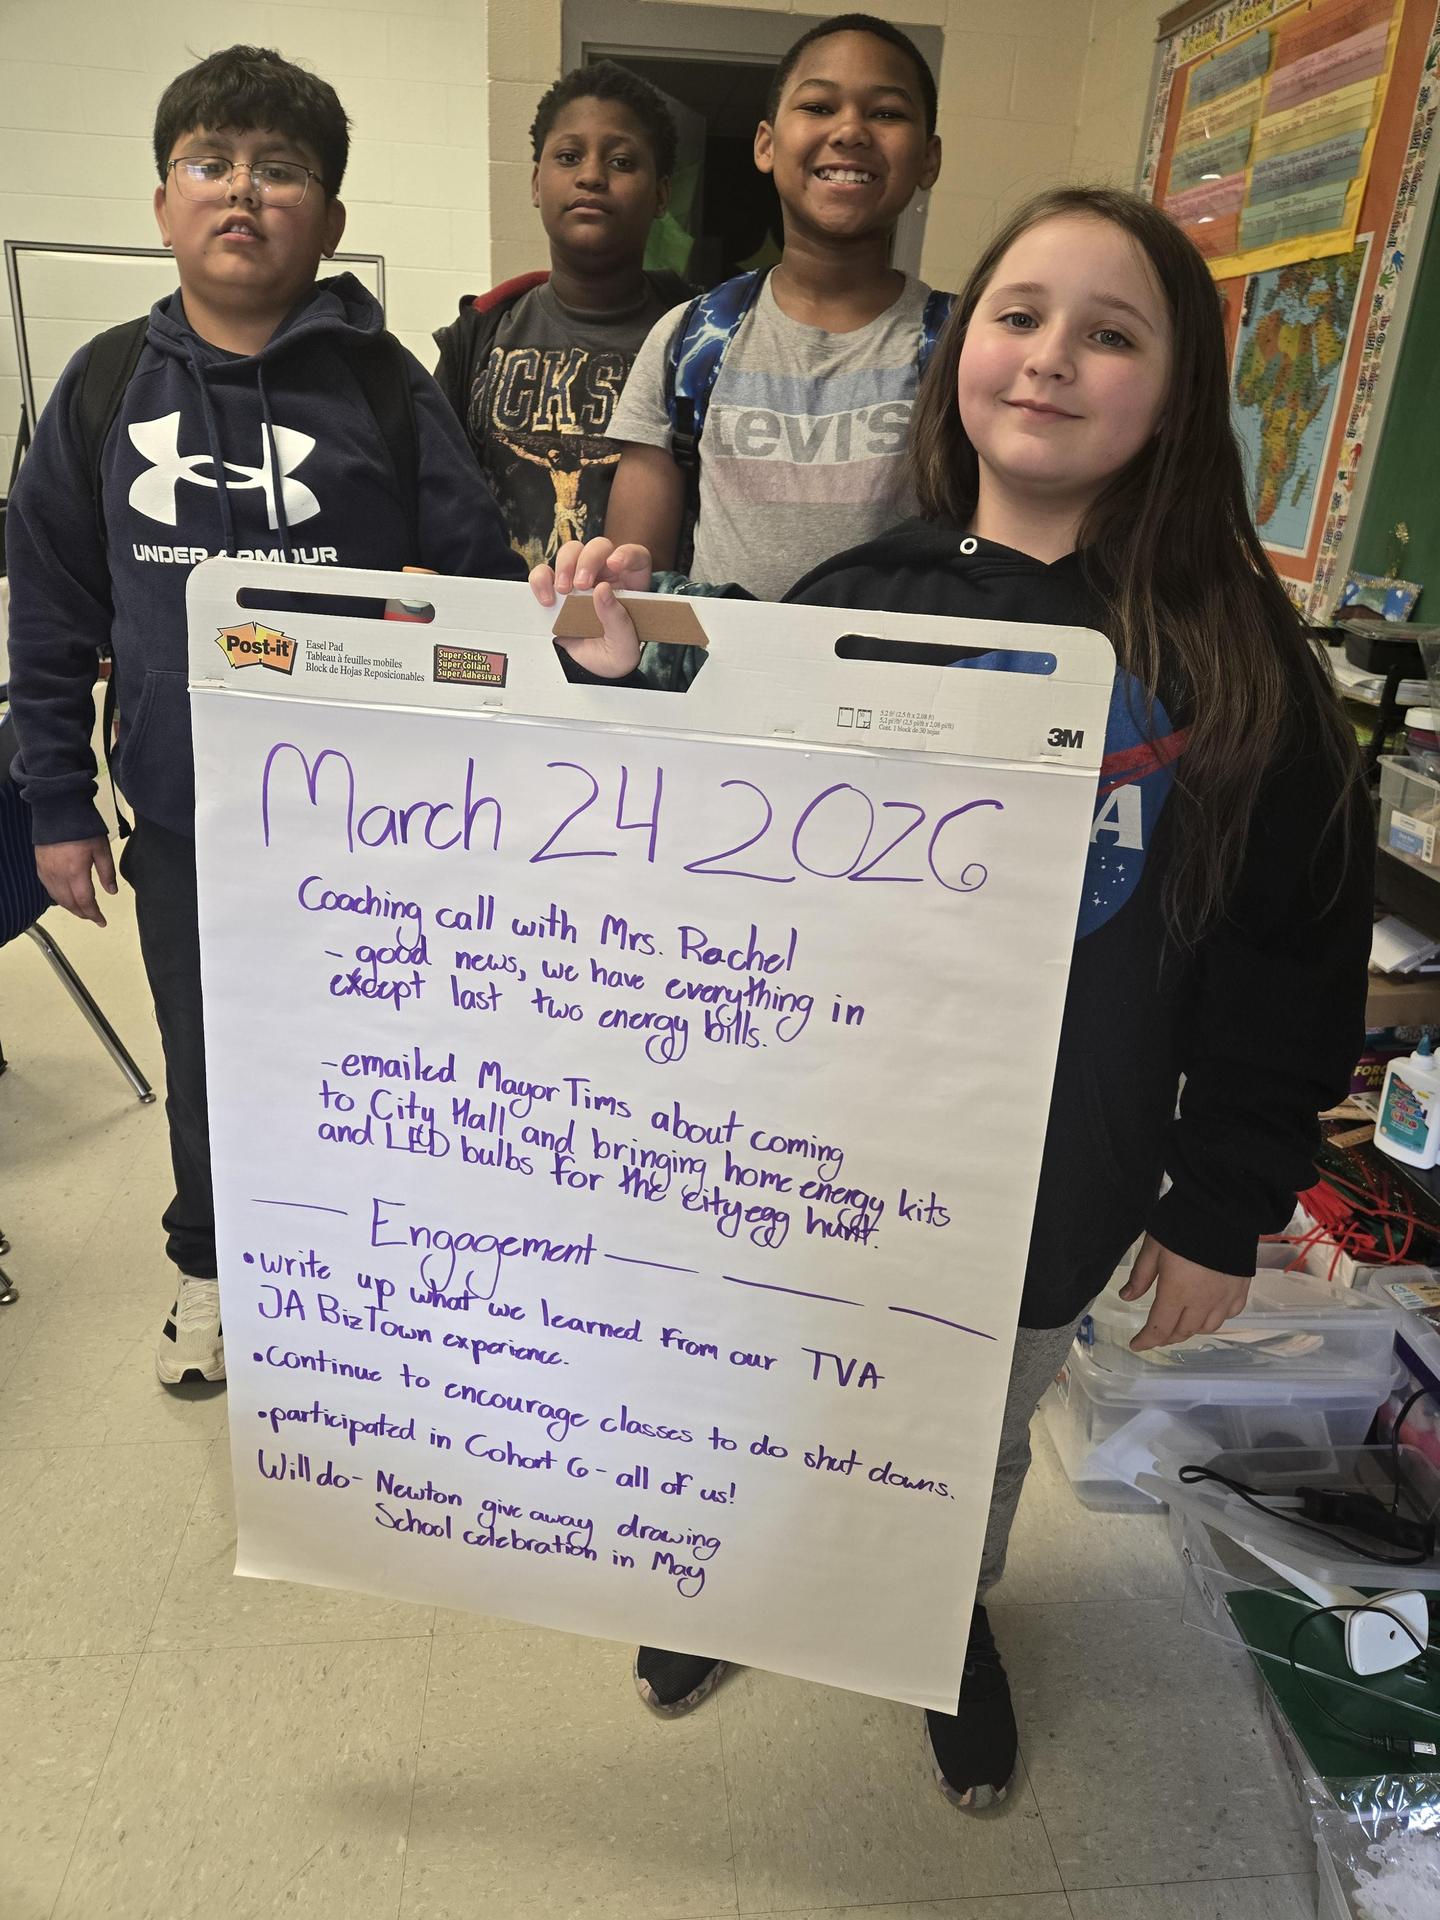 UNDER ARMOUR
UCKS
Levi's
Post-it
Easel Pad
Tableau à feuilles mobiles
Block de Hojas Reposicionables
Super Sticky
Super Collant
Super Adhesivas
3M
A
March 24 2026
Coaching call with Mrs. Rachel
- good news, we have everything in
except last two energy bills.
- emailed Mayor Tims about coming
to City Hall and bringing home energy kits
and LED bulbs for the city egg hunt.
Engagement
• write up what we learned from our TVA
JA BizTown experience.
• Continue to encourage classes to do shut downs.
• participated in Cohort 6 - all of us!
Will do - Newton give away drawing
School celebration in May